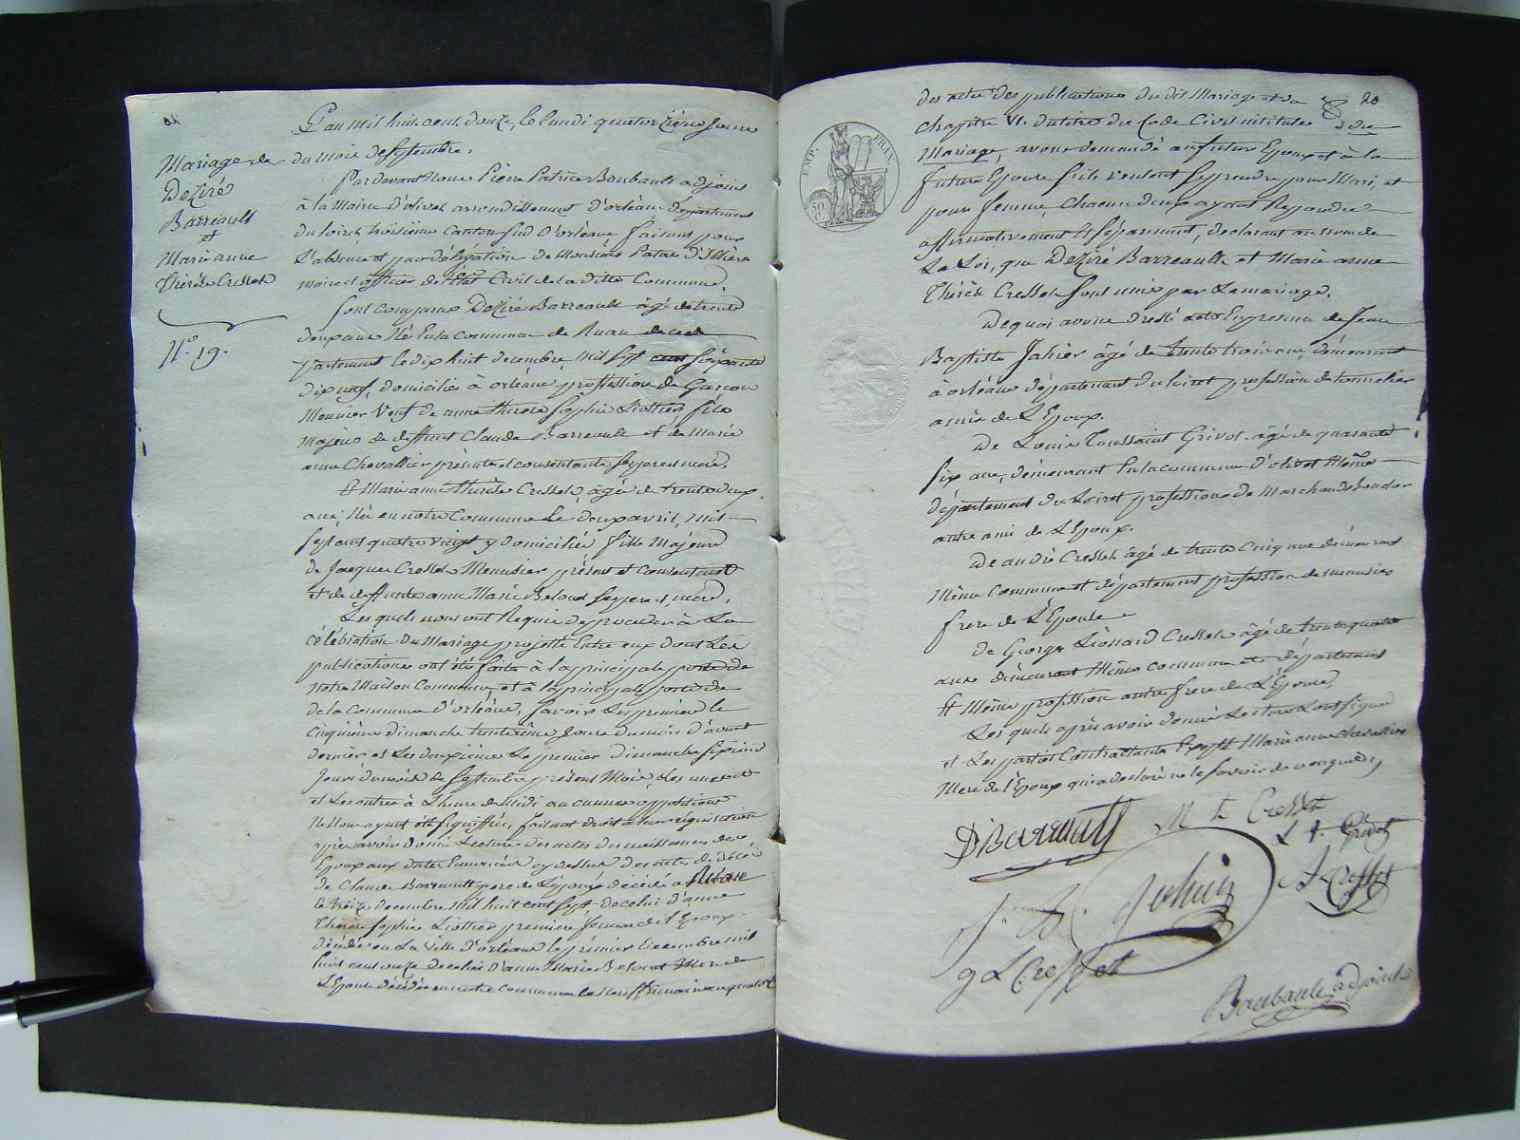 Mariage de
Deziré
Barreault
et
Marie anne
Thérèse Cresset
N.o 19.
L'an mil huit cent douze, le lundi quatorzième jour
du mois de septembre.
Par devant Nous Pierre Patrice Boubault adjoint
à la Mairie d'olivet arrondissement d'orléans Département
du loiret, troisieme Canton sud d'orléans faisant pour
L'absence et par délégation de Monsieur
maire et officier de l'état Civil de la ditte Commune.
Sont comparus Deziré Barreault âgé de trente
deux ans Né En la commune de Ruan de ce dé
partement le dix huit decembre mil sept cent soixante
dix neuf, domicilié à orléans profession de Garcon
Meunier Veuf de anne therese Sophie Liottier fils
Majeur de deffunt Claude Barreault et de Marie
anne Chevallier présente et consentante ses pere et mere.
Et Marie anne thérèse Cresset, âgée de trente deux
ans, Née en notre Commune Le deux avril, mil
sept cent quatre vingt y domiciliée fille Majeure
de Jacques Cresset Menuisier présent et consentant
et de deffunte anne Marie Belouet ses pere et mere.
Les quels nous ont Requis de proceder à La
célébration du Mariage projetté Entre eux dont Les
publications ont été faites à la principale porte de
notre Maison Commune, et à la principale porte de
de la Commune d'orléans, savoir La première le
cinquième dimanche trentième Jour du mois d'aoust
dernier et La deuxième Le premier Dimanche sixième
Jour du mois de septembre présent Mois
et à L'heure de Midi au cunne opposition
Ne nous ayant été signiffiée, faisant droit à leur réquisition
après avoir donné Lecture des actes des naissances des
Epoux aux dates Enoncées cy dessus des acte de décès
de Claude Barreault pere de L'Epoux décédé à Rüan
le treize decembre mil huit cent sept de celui d'anne
Thérèse Sophie Liottier premiere femme de l'Epoux
décédée en La ville d'orléans le prémier decembre mil
huit cent onze de celui D'anne Marie Belouet Mere de
L'Epouse décédée en notre commune le
20
des actes des publications du dit Mariage et du
chapitre VI. du titre du Code Civil intitulé du
Mariage, avons demandé au futur Epoux et à la
future Epouse s'ils veulent se prendre pour Mari, et
pour femme, chacun d'eux ayant Repondu
affirmativement Et séparement, declarons au nom de
La Loi, que Deziré Barreault et Marie anne
Thérèse Cresset sont unis par Le mariage.
De quoi avons dressé acte En presence de Jean
Baptiste Jahier âgé de trente trois ans démeurant
à orléans département du loiret profession de tonnelier
ami de L'Epoux.
De Louis Toussaint Grivot âgé de quarante
six ans, démeurant En la commune d'olivet Même
département du Loiret profession de Marchand
autre ami de L'Epoux.
De andré Cresset âgé de trente cinq ans démeurant
Même Commune et département profession de menuisier
frere de L'Epouse
De George Léonard Cresset âgé de trente quatre
ans démeurant Même commune et département
Et Même profession autre frere de L'Epouse,
Les quels après avoir donné Lecture L'ont signé
et Les parties Contractantes Excepté Marie anne Chevallier
Mere de l'Epoux qui a declaré ne le savoir de ce enquis
EMP. FRAN.
50
D Barreault
M t Cresset
L t Grivot
A Cresset
J. B. Jahier
g L Cresset
Boubault adjoint